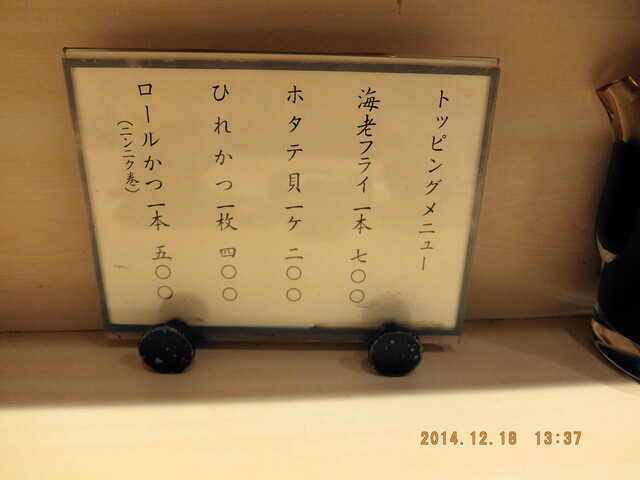 トッピングメニュー
海老フライ一本 七〇〇
ホタテ貝一ケ 二〇〇
ひれかつ一枚 四〇〇
ロールかつ一本 五〇〇
(ニンニク巻)
2014.12.18 13:37